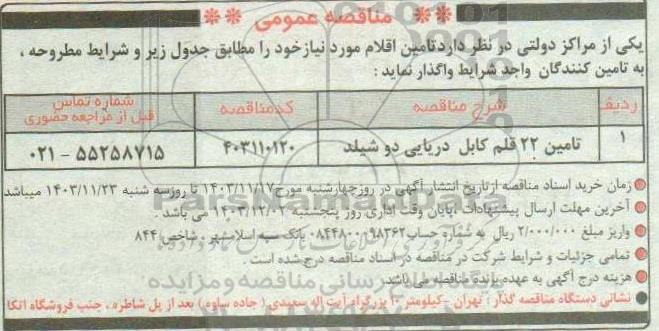 ** مناقصه عمومی **
یکی از مراکز دولتی در نظر دارد تامین اقلام مورد نیاز خود را مطابق جدول زیر و شرایط مطروحه ،
به تامین کنندگان واجد شرایط واگذار نماید :
ردیف شرح مناقصه کد مناقصه شماره تماس قبل از مراجعه حضوری
۱ تامین ۲۲ قلم کابل دریایی دو شیلد ۴۰۳۱۱۰۱۲۰ ۵۵۲۵۸۷۱۵ - ۰۲۱
زمان خرید اسناد مناقصه از تاریخ انتشار آگهی در روز چهارشنبه مورخ ۱۴۰۳/۱۱/۱۷ تا روز سه شنبه ۱۴۰۳/۱۱/۲۳ میباشد
آخرین مهلت ارسال پیشنهادات پایان وقت اداری روز پنجشنبه ۱۴۰۳/۱۲/۰۲ می باشد .
واریز مبلغ ۲/۰۰۰/۰۰۰ ریال به شماره حساب بانک سپه اسلامشهر ، شاخص ۸۴۴
تمامی جزئیات و شرایط شرکت در مناقصه در اسناد مناقصه درج شده است .
هزینه درج آگهی به عهده برنده مناقصه می باشد
نشانی دستگاه مناقصه گذار : تهران -کیلومتر ۱۰ بزرگراه آیت اله سعیدی ( جاده ساوه ) بعد از پل شاطره ، جنب فروشگاه اتکا
ParsNamadData